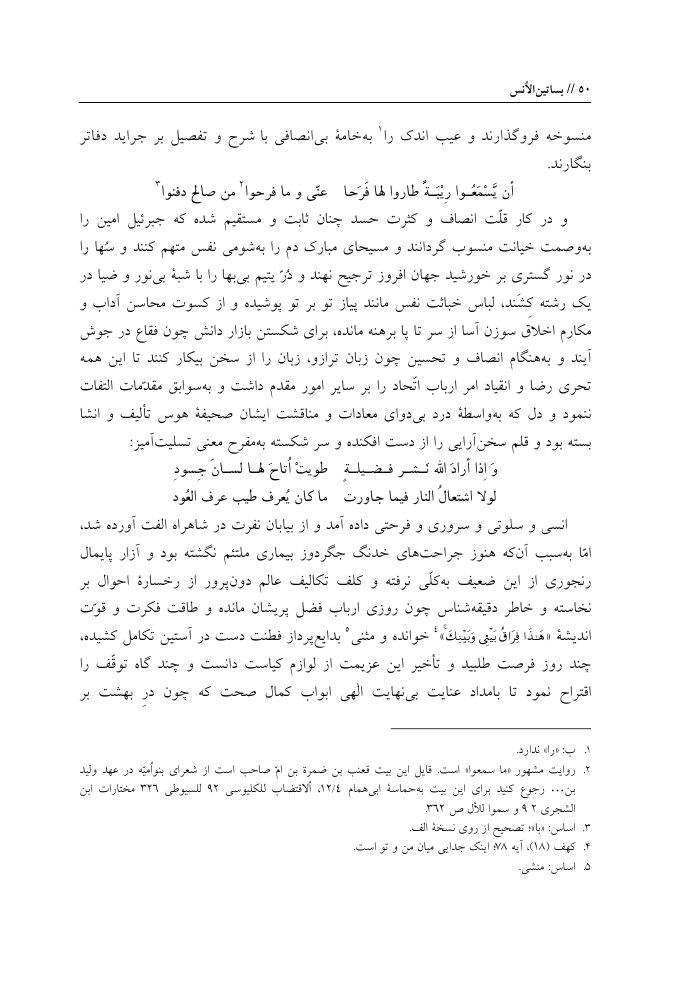 ۵۰ // بساتین‌الأنس
منسوخه فروگذارند و عیب اندک را۱ به‌خامهٔ بی‌انصافی با شرح و تفصیل بر جراید دفاتر
بنگارند.
أن یَّسْمَعُـوا رِیْبَـةٌ طاروا لها فَرَحا    عنّی و ما فرحوا۲ من صالح دفنوا۳
و در کار قلّت انصاف و کثرت حسد چنان ثابت و مستقیم شده که جبرئیل امین را
به‌وصمت خیانت منسوب گردانند و مسیحای مبارک دم را به‌شومی نفس متهم کنند و سُها را
در نور گستری بر خورشید جهان افروز ترجیح نهند و دُرّ یتیم بی‌بها را با شبهٔ بی‌نور و ضیا در
یک رشته کِشَند، لباس خباثت نفس مانند پیاز تو بر تو پوشیده و از کسوت محاسن آداب و
مکارم اخلاق سوزن آسا از سر تا پا برهنه مانده، برای شکستن بازار دانش چون فقاع در جوش
آیند و به‌هنگام انصاف و تحسین چون زبان ترازو، زبان را از سخن بیکار کنند تا این همه
تحری رضا و انقیاد امر ارباب اتّحاد را بر سایر امور مقدم داشت و به‌سوابق مقدّمات التفات
ننمود و دل که به‌واسطهٔ درد بی‌دوای معادات و مناقشت ایشان صحیفهٔ هوس تألیف و انشا
بسته بود و قلم سخن‌آرایی را از دست افکنده و سر شکسته به‌مفرح معنی تسلیت‌آمیز:
وَ إذا أرادَ الله نَـشـر فـضـیلـةٍ    طویتْ أُتاحَ لهـا لسـانَ حِسودِ
لولا اشتعالُ النار فیما جاورت    ما کان یُعرف طیب عرف العُود
انسی و سلوتی و سروری و فرحتی داده آمد و از بیابان نفرت در شاهراه الفت آورده شد،
امّا به‌سبب آن‌که هنوز جراحت‌های خدنگ جگردوز بیماری ملتئم نگشته بود و آزار پایمال
رنجوری از این ضعیف به‌کلّی نرفته و کلف تکالیف عالم دون‌پرور از رخسارهٔ احوال بر
نخاسته و خاطر دقیقه‌شناس چون روزی ارباب فضل پریشان مانده و طاقت فکرت و قوّت
اندیشهٔ «هَـٰذَا فِرَاقُ بَیْنِی وَبَیْنِكَ»۴ خوانده و مثنی۵ بدایع‌پرداز فطنت دست در آستین تکامل کشیده،
چند روز فرصت طلبید و تأخیر این عزیمت از لوازم کیاست دانست و چند گاه توقّف را
اقتراح نمود تا بامداد عنایت بی‌نهایت الٰهی ابواب کمال صحت که چون درِ بهشت بر
۱. ب: «را» ندارد.
۲. روایت مشهور «ما سمعوا» است. قایل این بیت قعنب بن ضمرة بن امّ صاحب است از شعرای بنوأمیّه در عهد ولید
بن... رجوع کنید برای این بیت به‌حماسهٔ ابی‌همام ۱۲/٤، ألاقتضاب للکلیوسی ۹۲ للسیوطی ۳۲٦ مختارات ابن
الشجری ۲ ۹ و سموا للأل ص ۳٦۲.
۳. اساس: «با»؛ تصحیح از روی نسخهٔ الف.
۴. کهف (۱۸)، آیه ۷۸؛ اینک جدایی میان من و تو است.
۵. اساس: منشی.